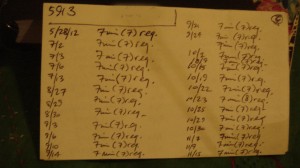 5913
5/28/12 7 min (7) reg.
7/2 7 min (7) reg.
7/3 7 min (7) reg.
7/10 7 min (7) reg.
7/13 7 min (7) reg.
8/27 7 min (7) reg.
8/29 7 min (7) reg.
8/30 7 min (7) reg.
9/3 7 min (7) reg.
9/10 7 min (7) reg.
9/14 7 min (7) reg.
9/21 7 min (7) reg.
9/23 7 min (7) reg.
7 min (7) reg.
10/2 7 min (7) reg.
7 min (7) reg.
10/15 7 min (7) reg.
10/19 7 min (7) reg.
10/22 7 min (7) reg.
10/23 7 min (7) reg.
10/25 7 min (7) reg.
10/29 7 min (7) reg.
10/30 7 min (7) reg.
7 min (7) reg.
7 min (7) reg.